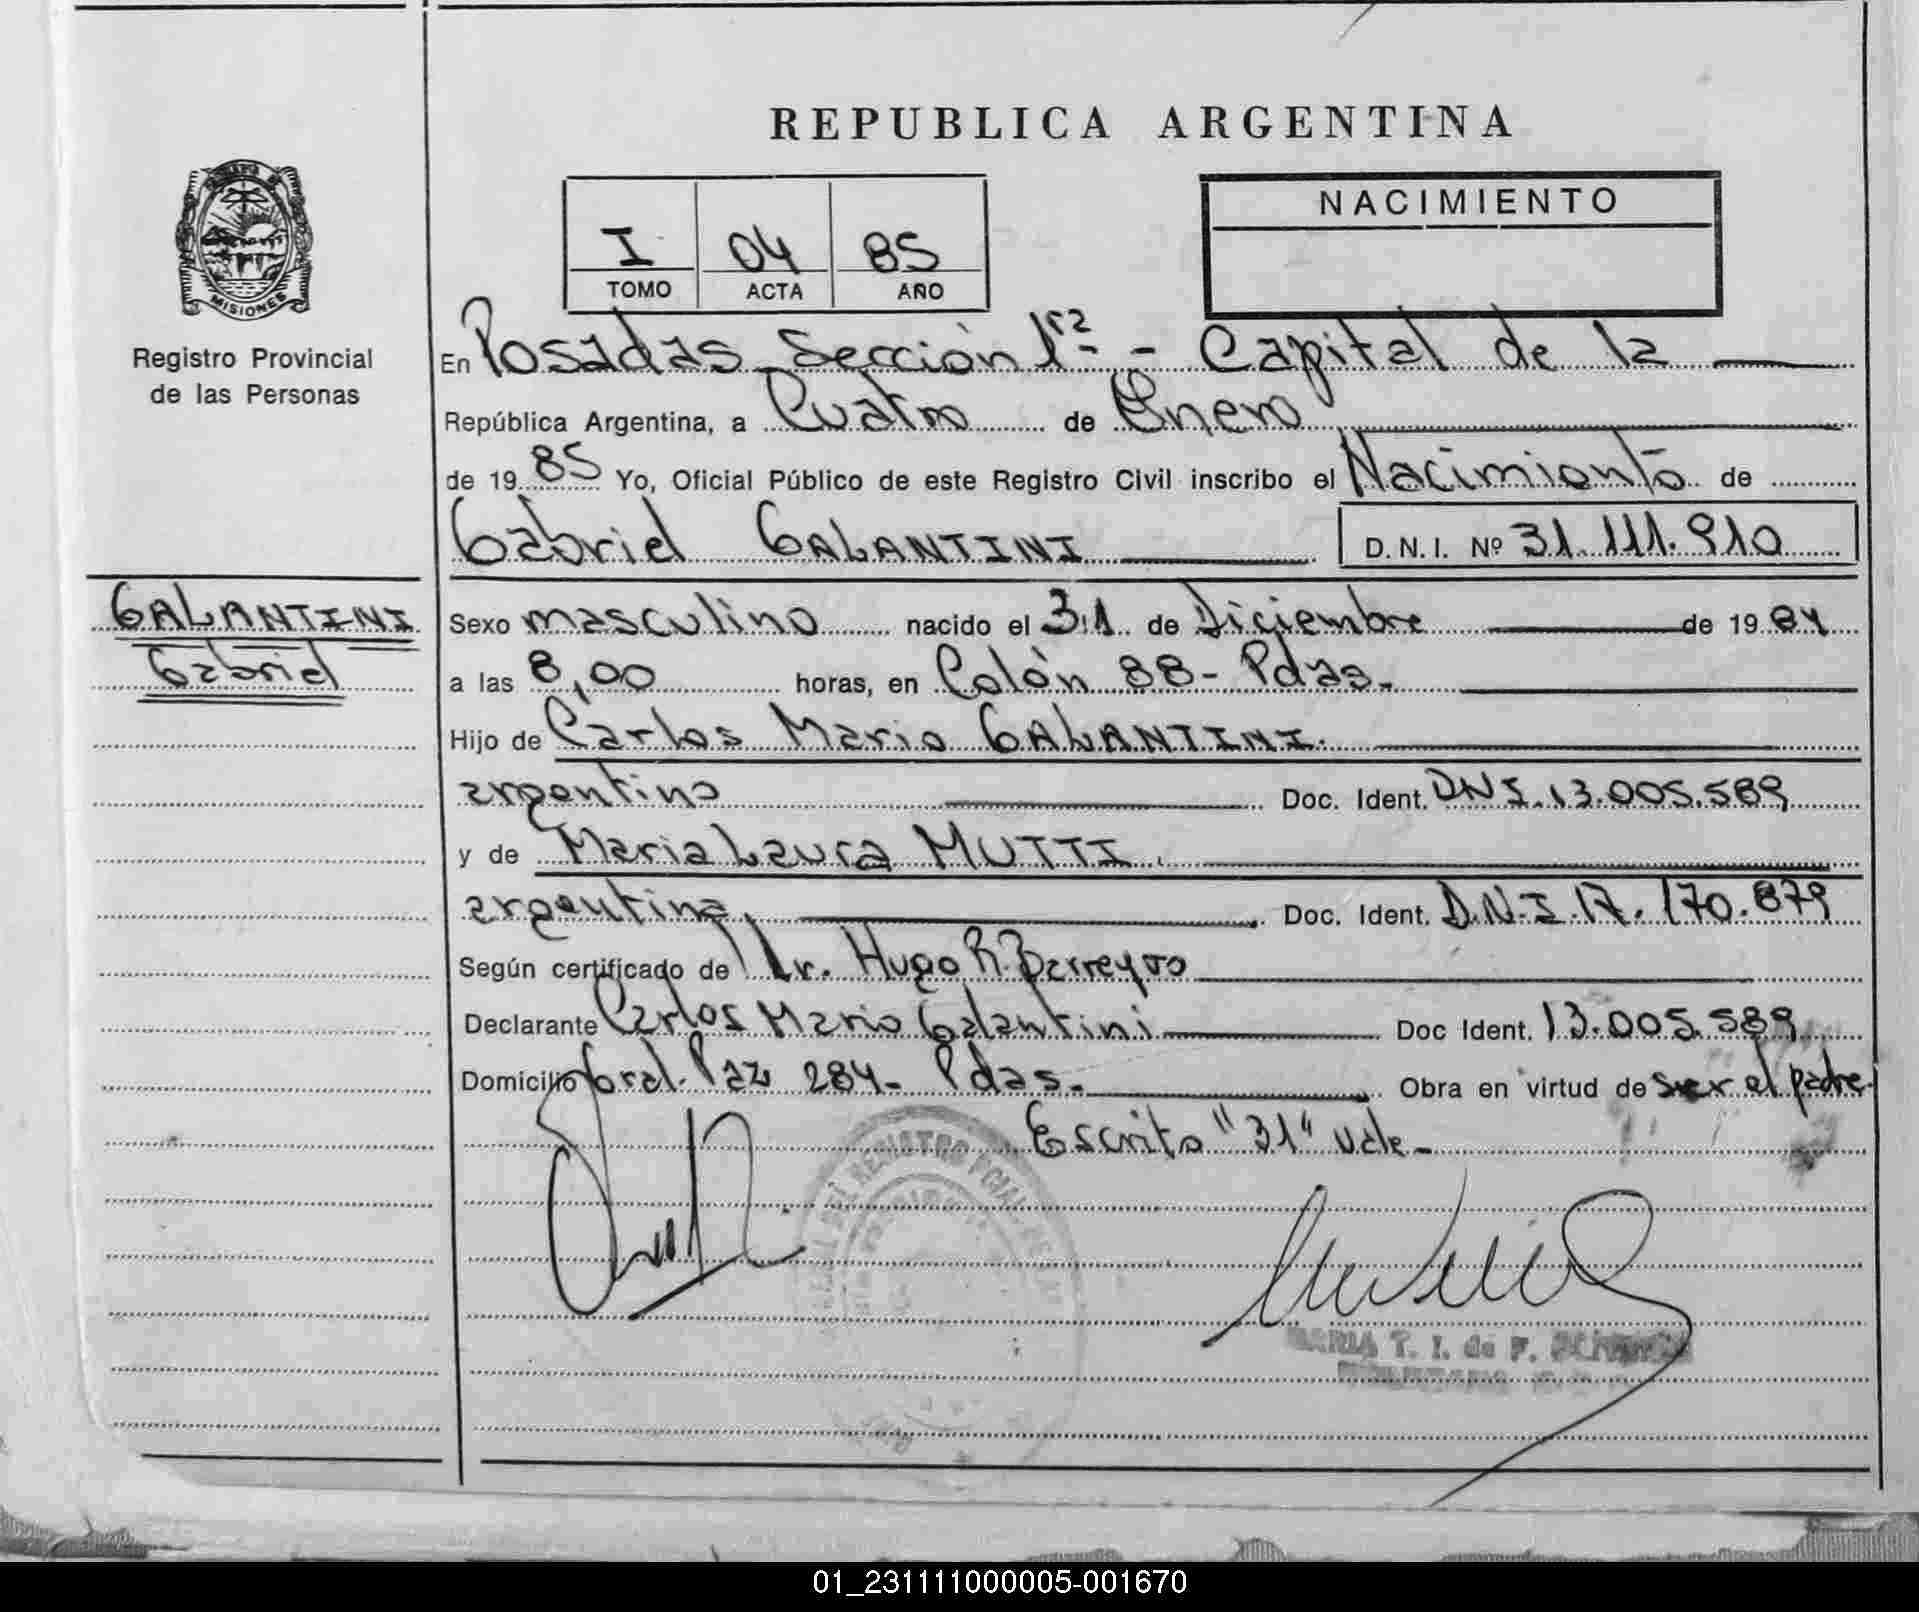 REPUBLICA ARGENTINA
MISIONES
Registro Provincial
de las Personas
I 04 85
TOMO ACTA AÑO
NACIMIENTO
En Posadas Sección 1ra - Capital de la
República Argentina, a Cuatro de Enero
de 1985 Yo, Oficial Público de este Registro Civil inscribo el Nacimiento de
Gabriel GALANTINI D.N.I. Nº 31.111.910
GALANTINI
Gabriel
Sexo masculino nacido el 31 de Diciembre de 1984
a las 8,00 horas, en Colón 88- Pdas.
Hijo de Carlos Mario GALANTINI.
argentino Doc. Ident. DNI.13.005.589
y de Maria Laura MUTTI.
argentina, Doc. Ident. D.N.I.17.170.879
Según certificado de Dr. Hugo R. Barreyro
Declarante Carlos Mario Galantini Doc Ident. 13.005.589
Domicilio Gral. Paz 284- Pdas. Obra en virtud de ser el padre.
Escrito "31" vale-
MARIA T. I. de F.
01_231111000005-001670